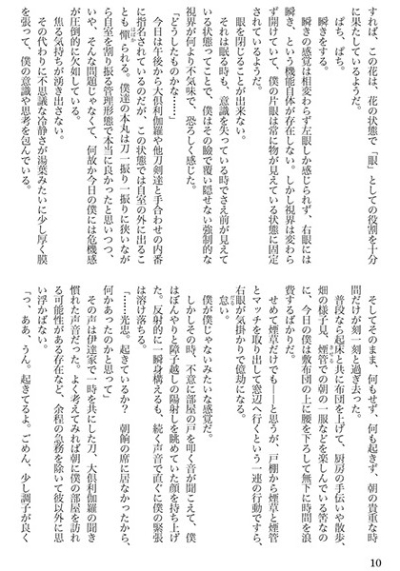 すれば、この花は、花の状態で「眼」としての役割を十分
に果たしているようだ。
ぱち、ぱち。
瞬きをする。
瞬きの感覚は相変わらず左眼しか感じられず、右眼には
瞬き、という機能自体が存在しない。しかし視界は変わら
ず開けていて、僕の片眼は常に物が見えている状態に固定
されているようだ。
眼を閉じることが出来ない。
それは眠る時も、意識を失っている時でさえ前が見えて
いる状態ってことで、僕はその瞼で覆い隠せない強制的な
視界が何より不気味で、恐ろしく感じた。
「どうしたものかな……」
今日は午後から大倶利伽羅や他刀剣達と手合わせの内番
に指名されているのだが、この状態では自室の外に出るこ
とも憚られる。僕達の本丸は刀一振り一振りに狭いなが
ら自室を割り振る管理形態で本当に良かったと思いつつ、
いや、そんな問題じゃなくて、何故か今日の僕には危機感
が圧倒的に欠如している。
焦る気持ちが湧き出さない。
その代わりに不思議な冷静さが湯葉みたいに少し厚く膜
を張って、僕の意識や思考を包んでいる。
そしてそのまま、何もせず、何も起きず、朝の貴重な時
間だけが刻一刻と過ぎ去った。
普段なら起床と共に布団を上げて、厨房の手伝いや散歩、
畑の様子見、煙管での朝の一服などを楽しんでいる筈なの
に、今日の僕は敷布団の上に腰を下ろして無下に時間を浪
費するばかりだ。
せめて煙草だけでも――と思うが、戸棚から煙草と煙管
とマッチを取り出して窓辺へ行くという一連の行動ですら、
右眼が気掛かりで億劫になる。
怠い。
僕が僕じゃないみたいな感覚だ。
しかしその時、不意に部屋の戸を叩く音が聞こえて、僕
はぼんやりと障子越しの陽射しを眺めていた顔を持ち上げ
た。反射的に一瞬身構えるも、続く声音で直ぐに僕の緊張
は溶け落ちる。
「……光忠。起きているか？　朝餉の席に居なかったから、
何かあったのかと思って」
その声は伊達家で一時を共にした刀、大倶利伽羅の聞き
慣れた声音だった。よく考えてみれば朝に僕の部屋を訪れ
る可能性がある存在など、余程の急務を除いて彼以外に思
い浮かばない。
「っ、ああ、うん。起きてるよ。ごめん、少し調子が良く
10